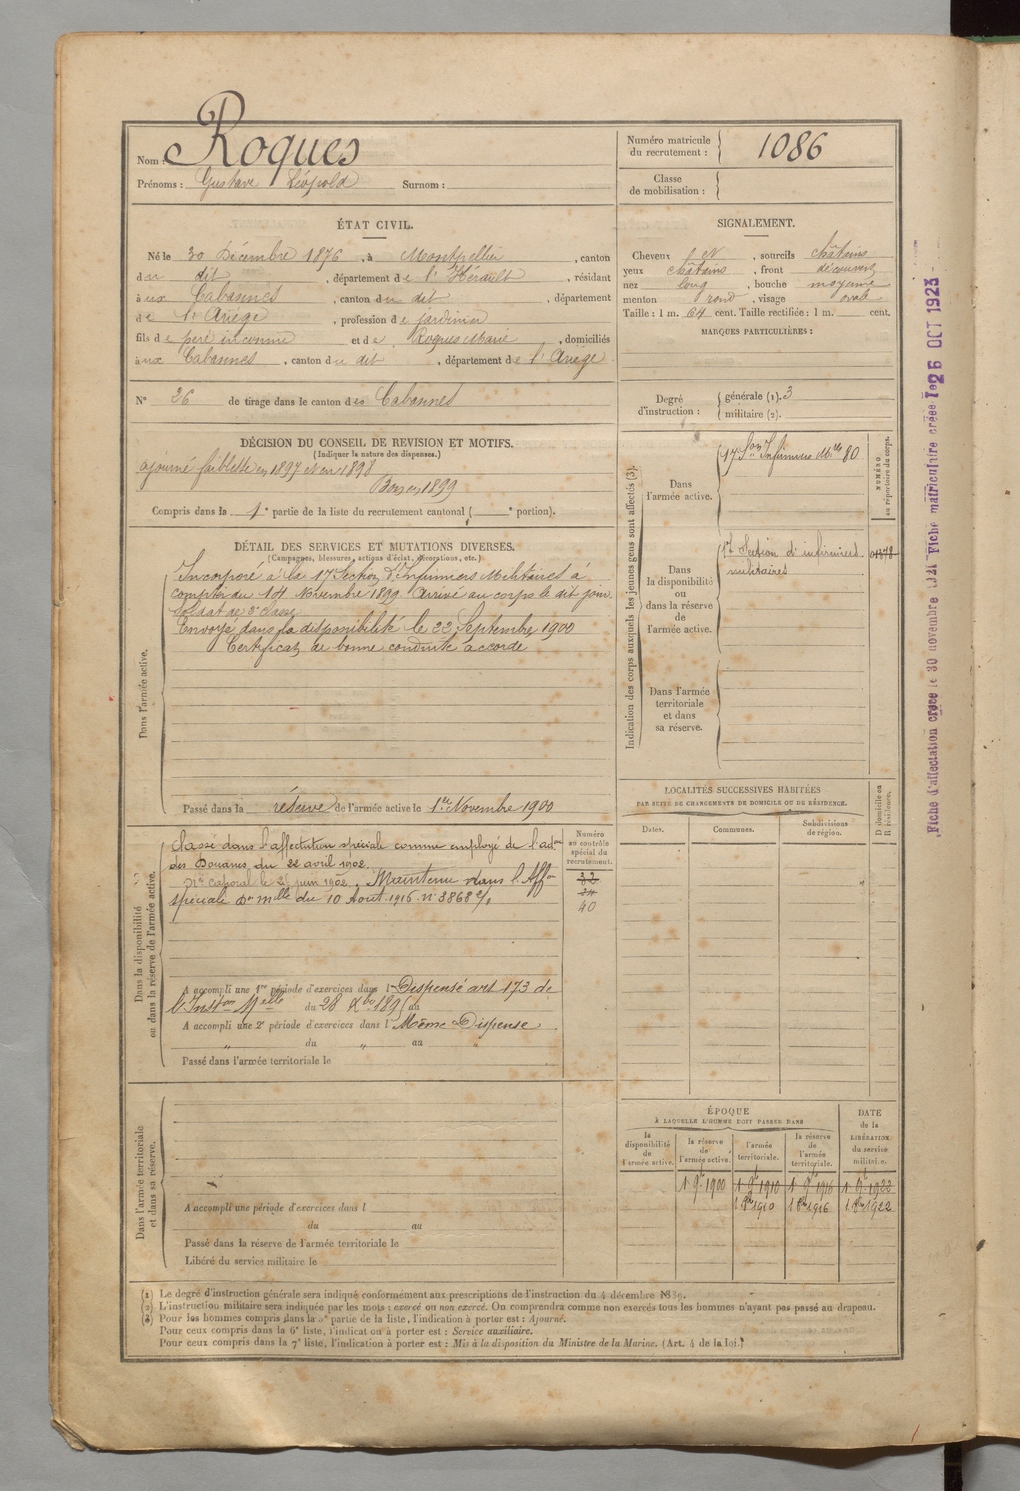 Nom : Roques
Prénoms : Gustave Léopold Surnom :
Numéro matricule du recrutement : 1086
Classe de mobilisation :
ÉTAT CIVIL.
Né le 30 Décembre 1876, à Montpellier, canton
du dit, département de l'Hérault, résidant
à ux Cabannes, canton du dit, département
de l'Ariège, profession de jardinier
fils de père inconnu et de Roques Marie, domiciliés
à aux Cabannes, canton du dit, département de l'Ariège.
N° 26 de tirage dans le canton des Cabannes
SIGNALEMENT.
Cheveux N, sourcils châtains
yeux châtains, front découvert
nez long, bouche moyenne
menton rond, visage ovale
Taille : 1 m. 64 cent. Taille rectifiée : 1 m. cent.
MARQUES PARTICULIÈRES :
Degré d'instruction : générale (1). 3
militaire (2).
DÉCISION DU CONSEIL DE REVISION ET MOTIFS.
(Indiquer la nature des dispenses.)
ajourné faiblesse en 1897 et en 1898
Bon en 1899
Compris dans la 1e partie de la liste du recrutement cantonal ( e portion).
DÉTAIL DES SERVICES ET MUTATIONS DIVERSES.
(Campagnes, blessures, actions d'éclat, décorations, etc.)
Dans l'armée active.
Incorporé à la 17 Section d'Infirmiers Militaires à
compter du 14 Novembre 1899. Arrivé au corps le dit jour
soldat de 2e classe
Envoyé dans la disponibilité le 22 Septembre 1900
Certificat de bonne conduite accordé
Passé dans la réserve de l'armée active le 1er Novembre 1900
Indication des corps auxquels les jeunes gens sont affectés (3).
NUMÉRO au répertoire du corps.
Dans l'armée active.
17 Son Infirmiers Mres 80
Dans la disponibilité ou dans la réserve de l'armée active.
17 Section d'infirmiers
militaires
Dans l'armée territoriale et dans sa réserve.
LOCALITÉS SUCCESSIVES HABITÉES
PAR SUITE DE CHANGEMENTS DE DOMICILE OU DE RÉSIDENCE.
Dates. Communes. Subdivisions de région.
D domicile ou R résidence.
Dans la disponibilité ou dans la réserve de l'armée active.
Numéro au contrôle spécial du recrutement.
Classé dans l'affectation spéciale comme employé de l'adon
des Douanes du 22 avril 1902.
caporal le 21 juin 1902. Maintenu dans l'Affon
spéciale Don Mlle du 10 Aout 1916. N° 3868
32
24
40
A accompli une 1re période d'exercices dans l Dispensé art 173 de
l'Inston Melle du 28 Xbre 1895 au
A accompli une 2e période d'exercices dans l Même Dispense
„ du „ au „
Passé dans l'armée territoriale le
Dans l'armée territoriale et dans sa réserve.
A accompli une période d'exercices dans l
du au
Passé dans la réserve de l'armée territoriale le
Libéré du service militaire le
ÉPOQUE
À LAQUELLE L'HOMME DOIT PASSER DANS
DATE de la LIBÉRATION du service militaire.
la disponibilité de l'armée active. la réserve de l'armée active. l'armée territoriale. la réserve de l'armée territoriale.
1 9bre 1900 1 9bre 1910 1 9bre 1916 1 9bre 1922
1 8bre 1910 1 8bre 1916 1 8bre 1922
(1) Le degré d'instruction générale sera indiqué conformément aux prescriptions de l'instruction du 4 décembre 1889.
(2) L'instruction militaire sera indiquée par les mots : exercé ou non exercé. On comprendra comme non exercés tous les hommes n'ayant pas passé au drapeau.
(3) Pour les hommes compris dans la 5e partie de la liste, l'indication à porter est : Ajourné.
Pour ceux compris dans la 6e liste, l'indication à porter est : Service auxiliaire.
Pour ceux compris dans la 7e liste, l'indication à porter est : Mis à la disposition du Ministre de la Marine. (Art. 4 de la loi.)
Fiche d'affectation créée le 30 novembre 1921 Fiche matriculaire créée le 26 OCT 1923